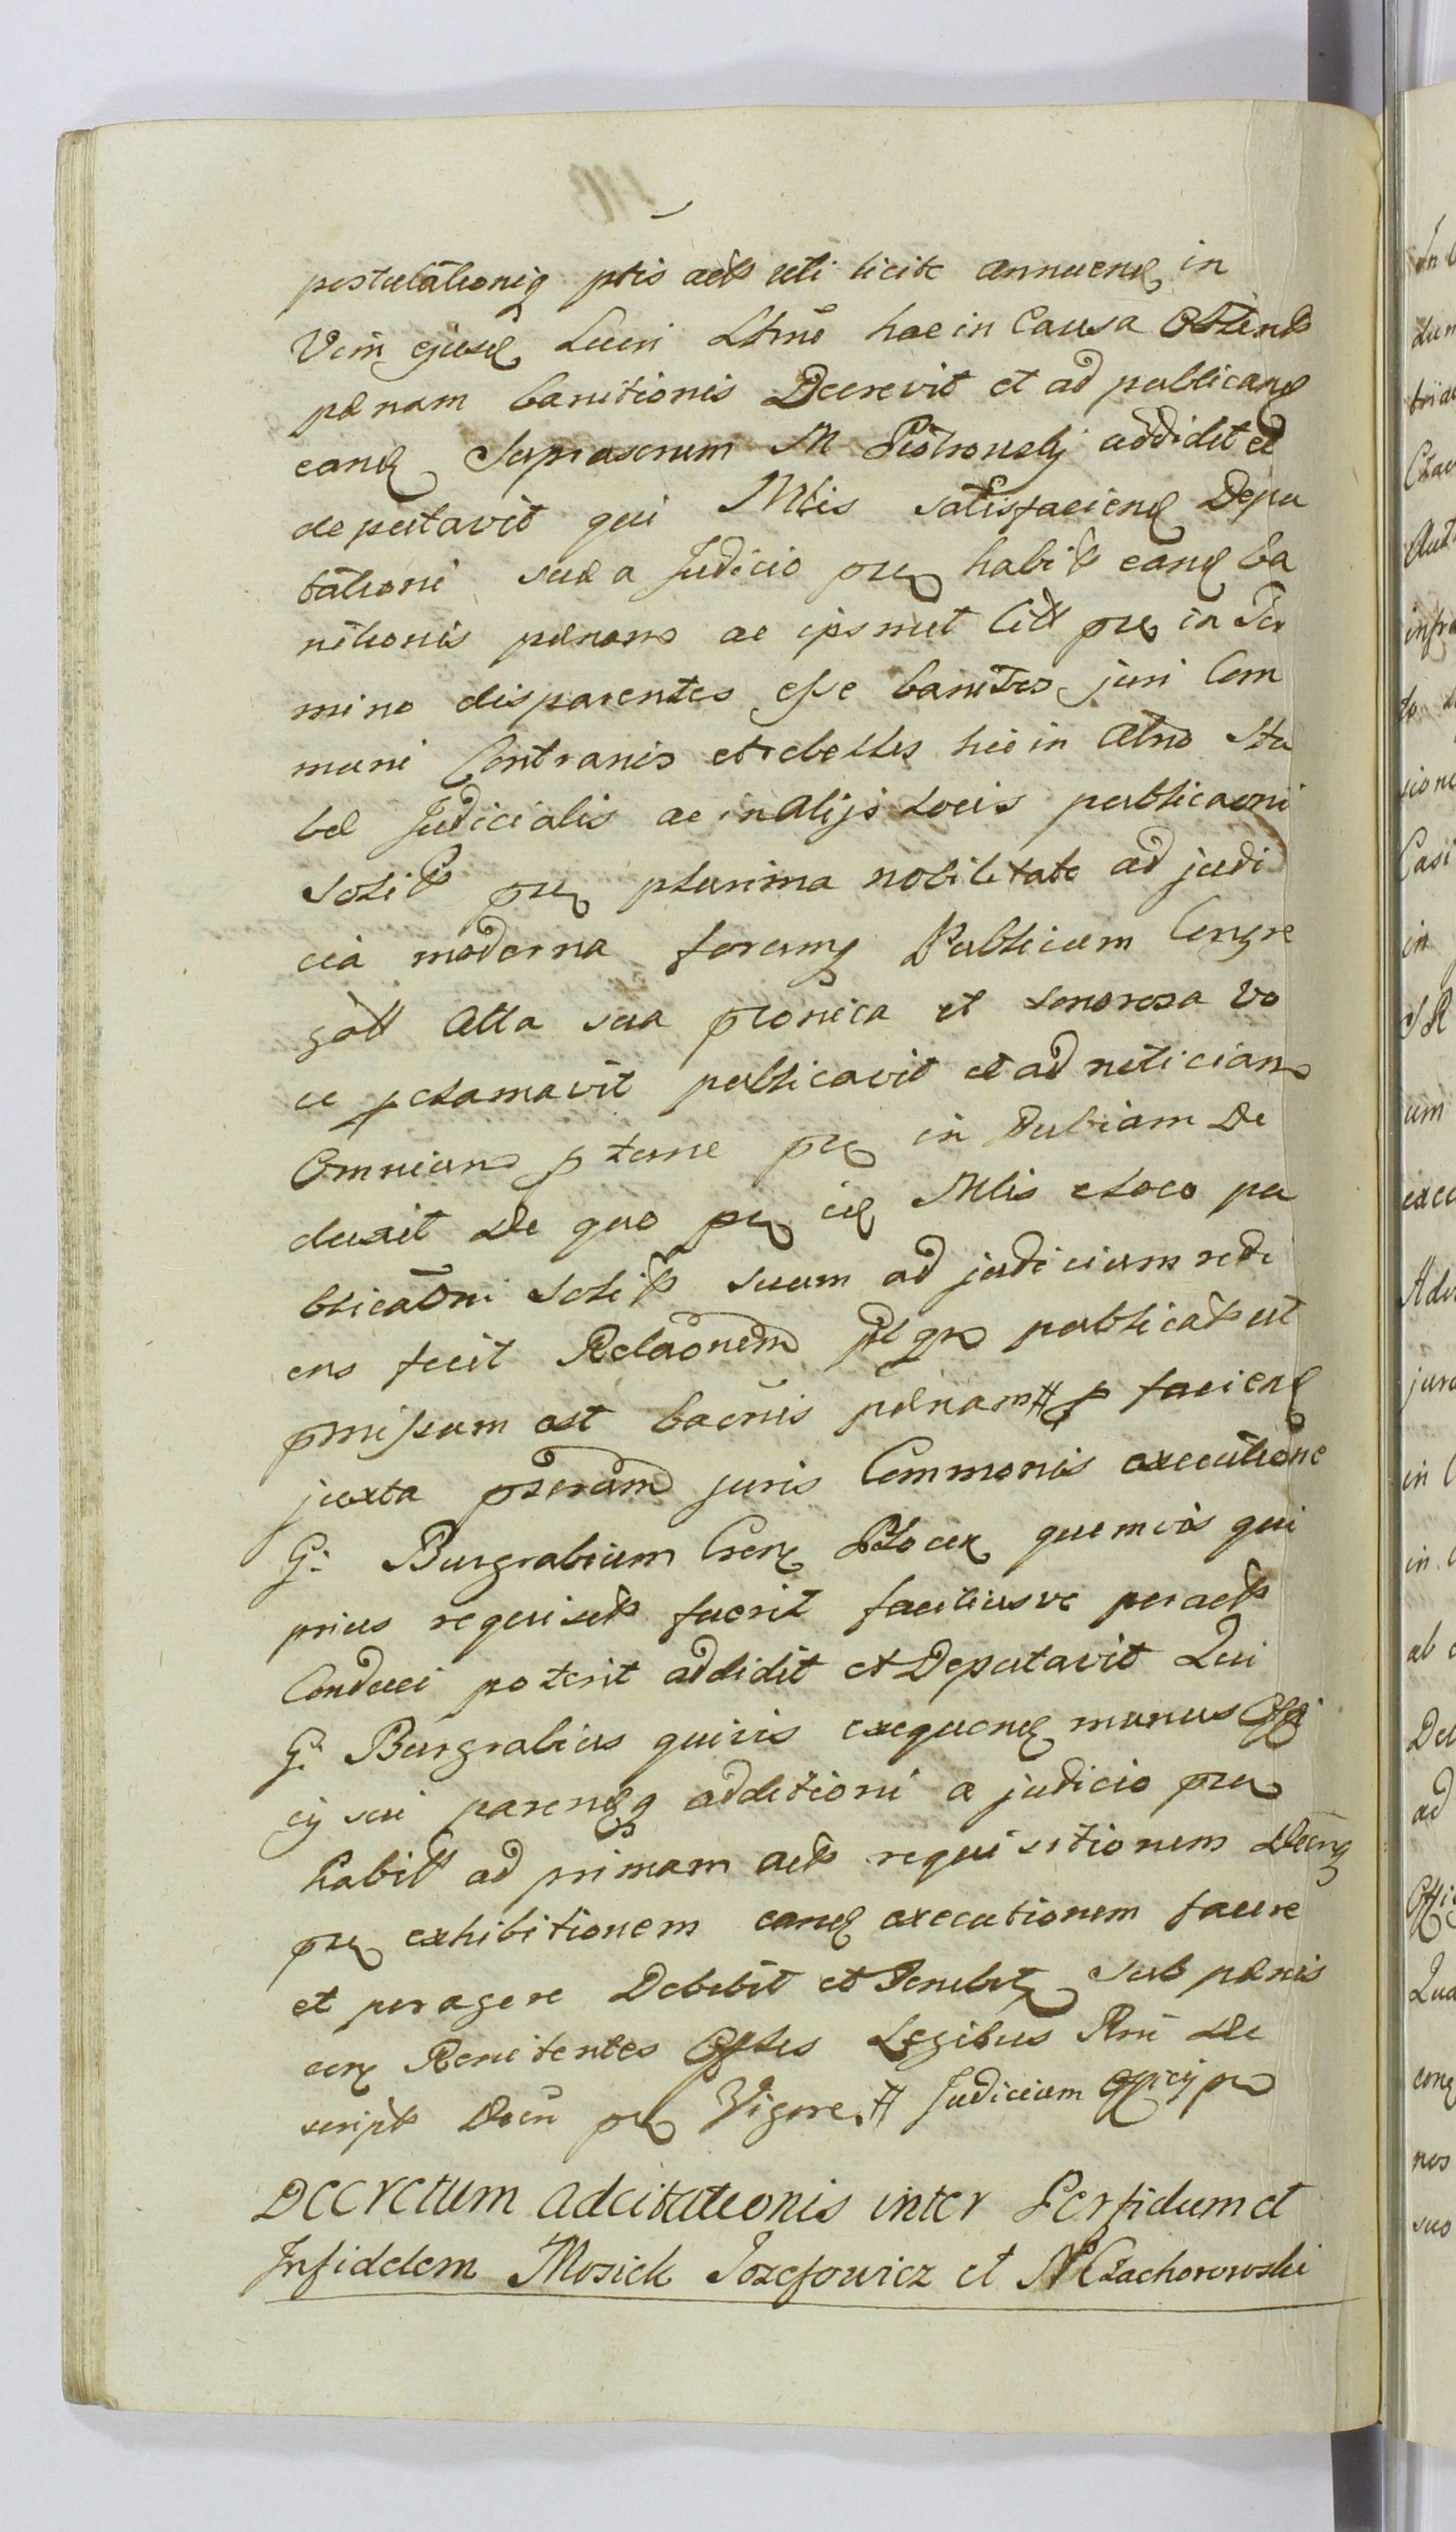 postulationiq ptis actt uti licite annuend in
Vim ejusd Lucri Ltrme hac in Causa Obtent
pænam banitionis Decrevit et ad publicand
eand Suprascrum M Piotrowskj addidit et
deputavit qui Mlis satisfaciend Depu
tationi suæ a Judicio pn habitt eand ba
nitionis pænam ac ipsmet Citt pn in Ter
mino disparentes esse banitos juri Com
muni Contrarios et rebelles hic in Atrio Stu
bæ Judicialis ac in alijs Locis publicaoni
Solitt pn plurima nobilitate ad judi
cia moderna forumq Publicum Congre
gatt Alta sua pronica et Sonorosa vo
ce pclamavit publicavit et ad noticiam
Omnium p tunc pn in dubiam De
duxit De quo pn id Mlis e Loco pu
blicaoni Solitt suum ad judicium redi
ens fecit Relaonem publicatt ut
pmissum est baonis pænam # p faciend
juxta pscram juris Commonis executione
G: Burgrabium Cren Plocen quemvis qui
prius requisitt fuerit faciliusve peractt
Conduci poterit addidit et Deputavit Qui
G. Burgrabius quivis exequend munus Offi
cij sui parendq additioni a judicio pn
habitt ad primam actt requisitionem
pn exhibitionem eand executionem facere
et peragere Debebit et Tenebit Sub pænis
Renitentes Legibus Rni De
script Decti pn Vigore. # Judicium Officij pn
Decretum adcitationis inter Perfidum et
Infidelem Mosiek Jozefowicz et N Czachorowski